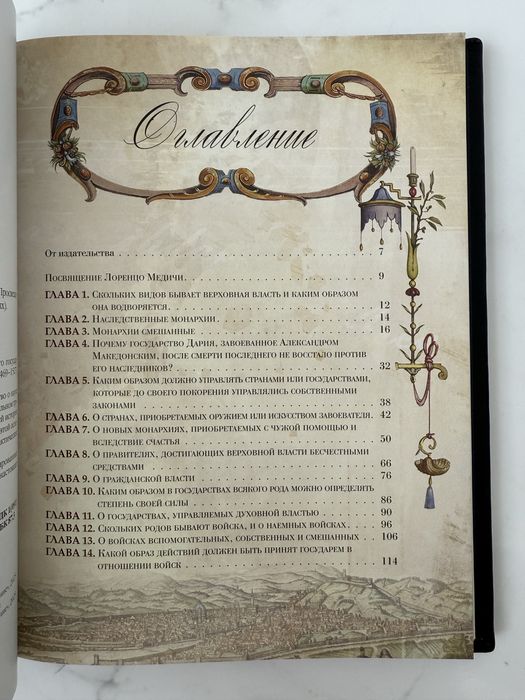 Оглавление
От издательства . . . . . . . . . . . . . . . . . . . . . . . . . . . . 7
Посвящение Лоренцо Медичи. . . . . . . . . . . . . . . . . . . . 9
ГЛАВА 1. Скольких видов бывает верховная власть и каким образом
она водворяется. . . . . . . . . . . . . . . . . . . . . 12
ГЛАВА 2. Наследственные монархии . . . . . . . . . . . . . . . . 14
ГЛАВА 3. Монархии смешанные . . . . . . . . . . . . . . . . . . . 16
ГЛАВА 4. Почему государство Дария, завоеванное Александром
Македонским, после смерти последнего не восстало против
его наследников? . . . . . . . . . . . . . . . . . . . . . 32
ГЛАВА 5. Каким образом должно управлять странами или государствами,
которые до своего покорения управлялись собственными
законами . . . . . . . . . . . . . . . . . . . . . . . . . 38
ГЛАВА 6. О странах, приобретаемых оружием или искусством завоевателя. 42
ГЛАВА 7. О новых монархиях, приобретаемых с чужой помощью и
вследствие счастья . . . . . . . . . . . . . . . . . . . . 50
ГЛАВА 8. О правителях, достигающих верховной власти бесчестными
средствами . . . . . . . . . . . . . . . . . . . . . . . . 66
ГЛАВА 9. О гражданской власти . . . . . . . . . . . . . . . . . . 76
ГЛАВА 10. Каким образом в государствах всякого рода можно определить
степень своей силы . . . . . . . . . . . . . . . . . . . . 86
ГЛАВА 11. О государствах, управляемых духовной властью . . . . . . 90
ГЛАВА 12. Скольких родов бывают войска, и о наемных войсках . . . . 96
ГЛАВА 13. О войсках вспомогательных, собственных и смешанных . . . 106
ГЛАВА 14. Какой образ действий должен быть принят государем в
отношении войск . . . . . . . . . . . . . . . . . . . . . 114